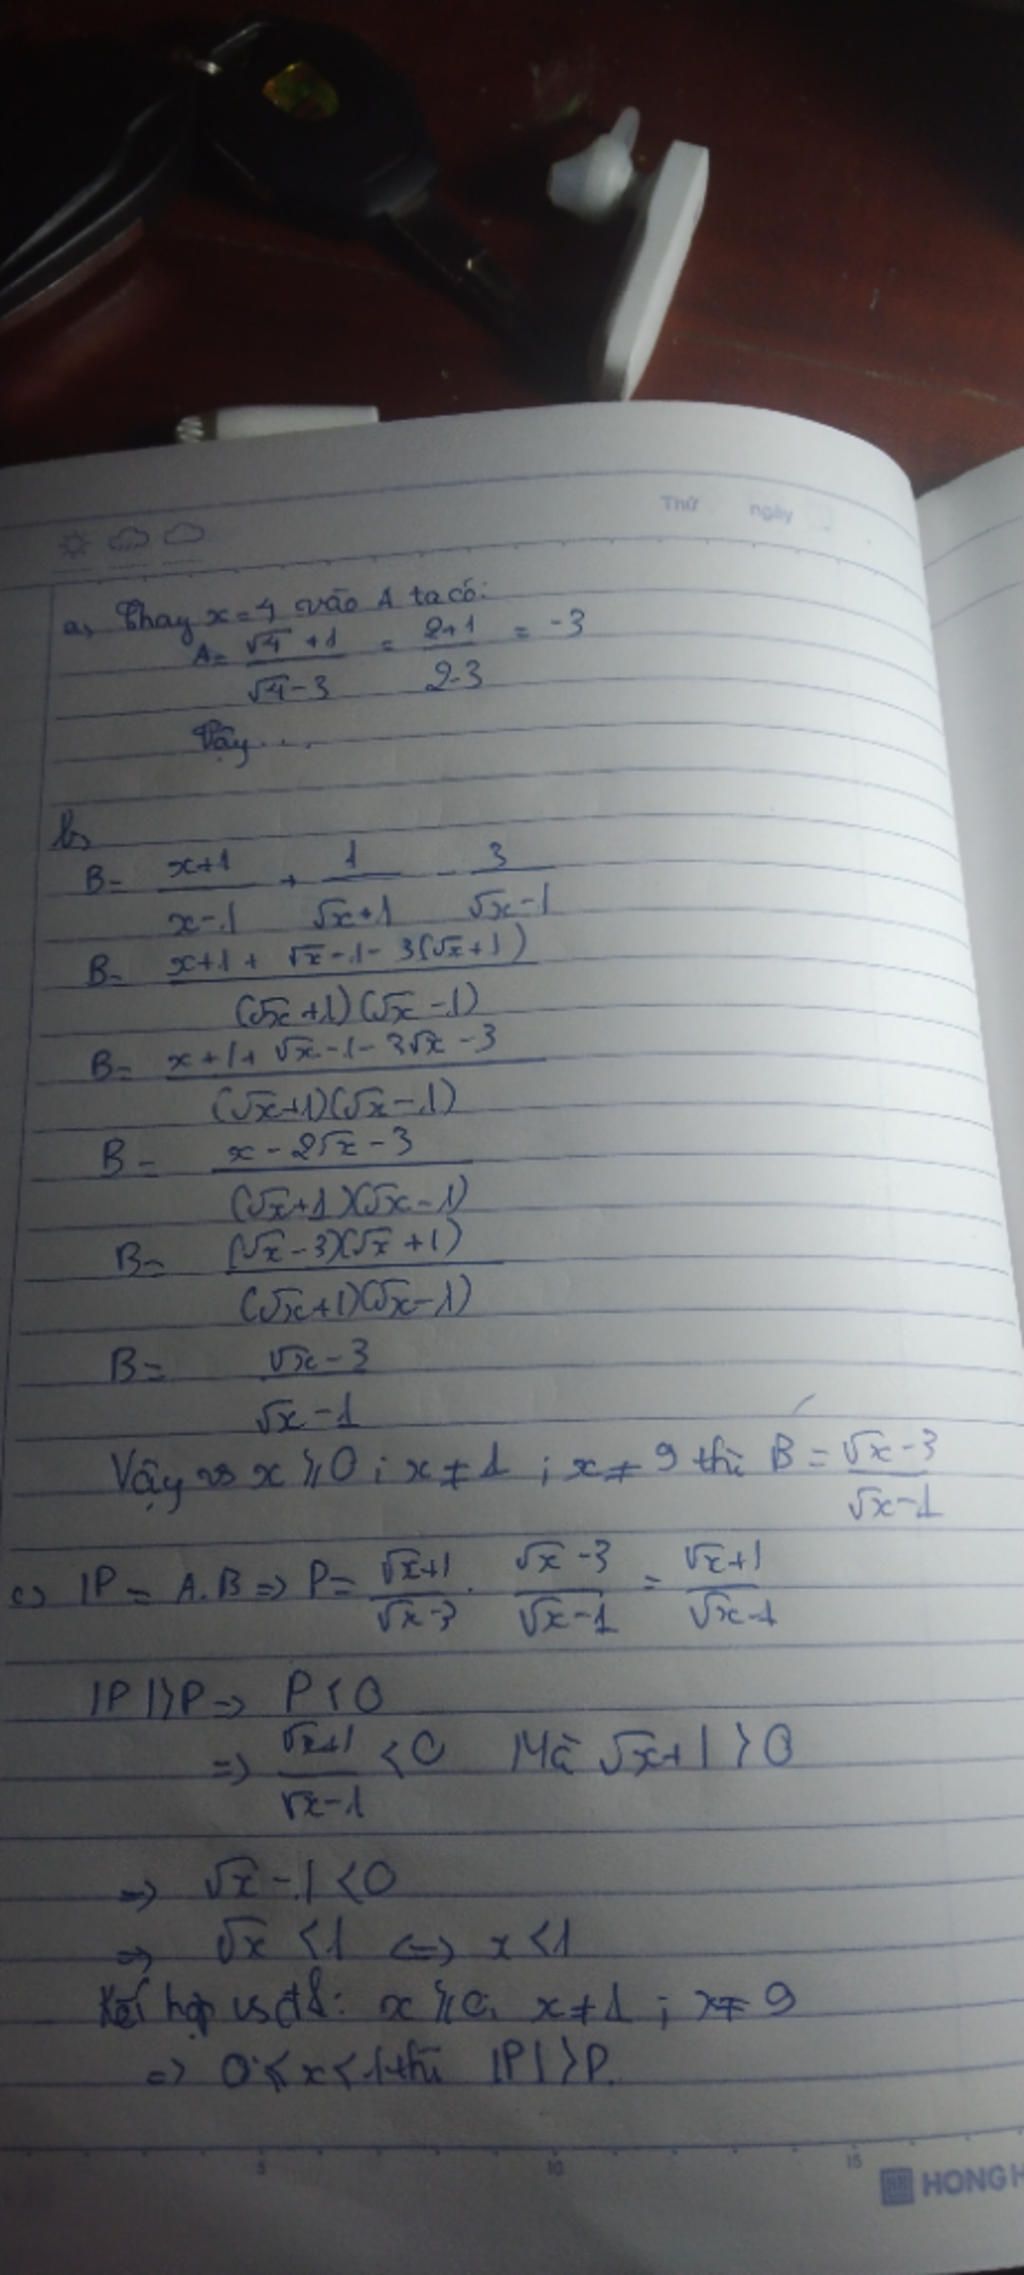 Thứ ngày
a, Thay x = 4 vào A ta có:
A = (√4 + 1)/(√4 - 3) = (2+1)/(2-3) = -3
Vậy ...
b,
B = (x+1)/(x-1) + 1/(√x+1) - 3/(√x-1)
B = (x+1 + √x-1 - 3(√x+1))/((√x+1)(√x-1))
B = (x+1+√x-1-3√x-3)/((√x+1)(√x-1))
B = (x-2√x-3)/((√x+1)(√x-1))
B = ((√x-3)(√x+1))/((√x+1)(√x-1))
B = (√x-3)/(√x-1)
Vậy vs x ⩾ 0 ; x ≠ 1 ; x ≠ 9 thì B = (√x-3)/(√x-1)
c) P = A.B => P = (√x+1)/(√x-3) . (√x-3)/(√x-1) = (√x+1)/(√x-1)
|P| > P => P < 0
=> (√x+1)/(√x-1) < 0 Mà √x+1 > 0
=> √x-1 < 0
=> √x < 1 <=> x < 1
Kết hợp vs đk: x ⩾ 0; x ≠ 1 ; x ≠ 9
=> 0 ⩽ x < 1 thì |P| > P.
5 10 15
HONG H